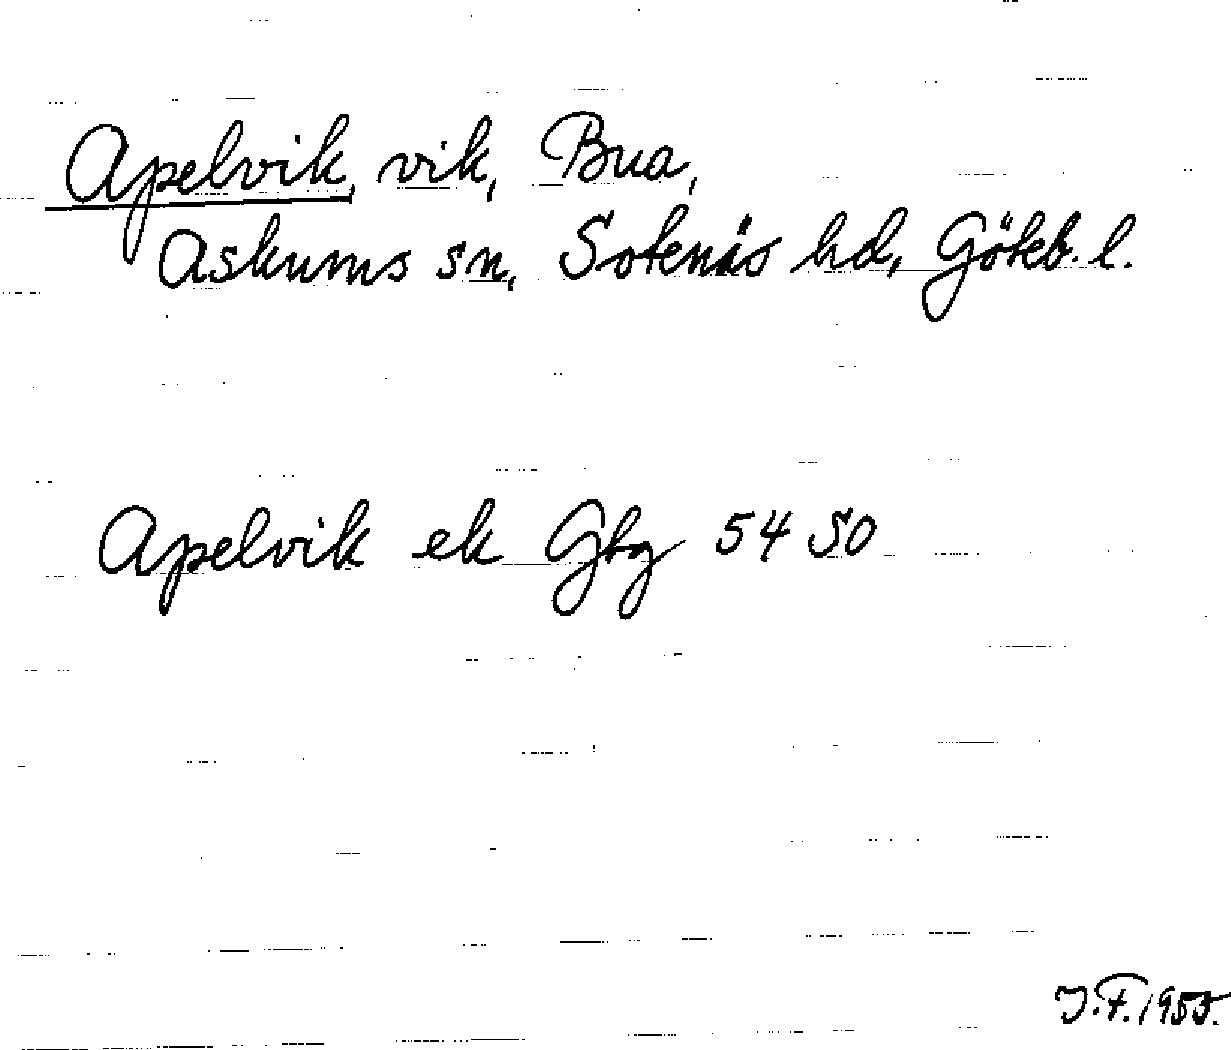 Apelvik, vik, Bua,
Askums sn, Sotenäs hd, Göteb. l.
Apelvik ek Gbg 54 SO
J.F. 1955.